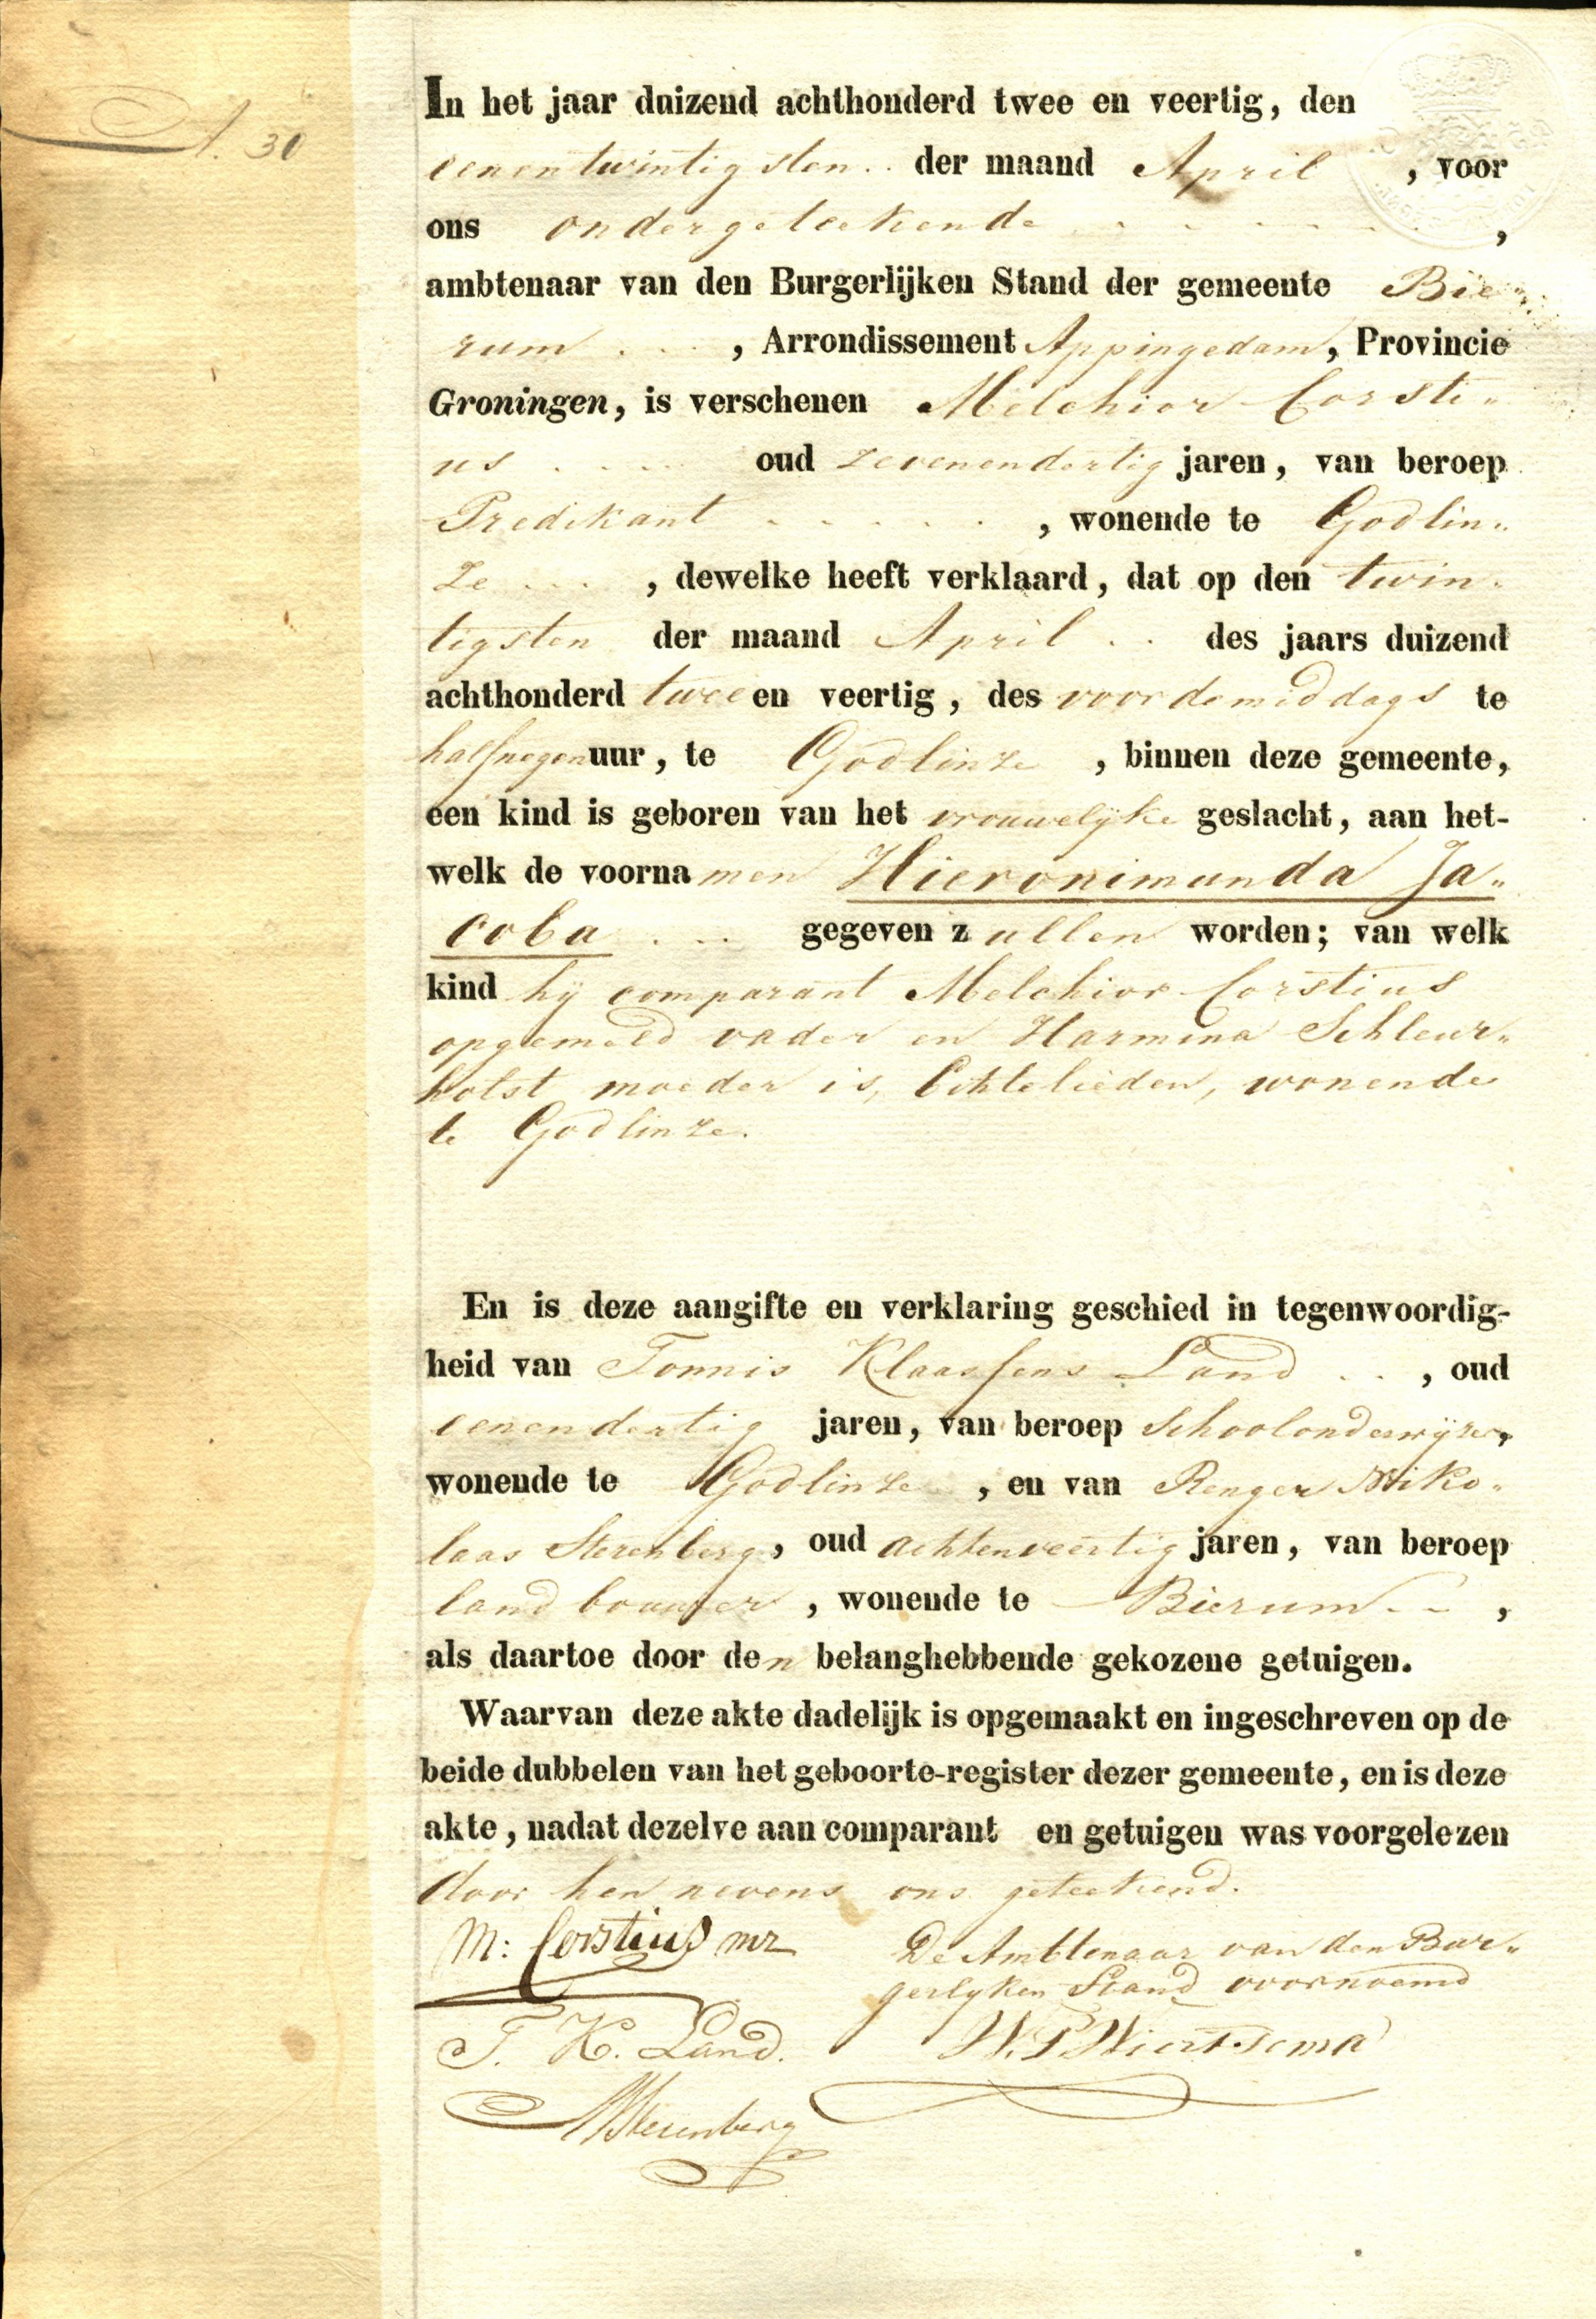 A. 30
In het jaar duizend achthonderd twee en veertig, den
eenentwintigsten .. der maand April , voor
ons ondergeteekende . . . . . . ,
ambtenaar van den Burgerlijken Stand der gemeente Bie„
rum . . . , Arrondissement Appingedam, Provincie
Groningen, is verschenen Melchior Corsti„
us . . . . oud zevenendertig jaren, van beroep
Predikant . . . . . , wonende te Godlin„
ze . . . , dewelke heeft verklaard, dat op den twin„
tigsten der maand April . . des jaars duizend
achthonderd twee en veertig, des voordemiddags te
halfnegen uur, te Godlinze , binnen deze gemeente,
een kind is geboren van het vrouwelyke geslacht, aan het-
welk de voornamen Hieronimunda Ja„
coba . . . gegeven zullen worden; van welk
kind hij comparant Melchior Corstius
opgemeld vader en Harmina Schleur„
holst moeder is, Echtelieden, wonende
te Godlinze.
En is deze aangifte en verklaring geschied in tegenwoordig-
heid van Tonnis Klaassens Land . . , oud
eenendertig jaren, van beroep Schoolonderwijzer,
wonende te Godlinze , en van Renger Niko„
laas Sterenberg, oud achtenveertig jaren, van beroep
landbouwer , wonende te Bierum . . ,
als daartoe door den belanghebbende gekozene getuigen.
Waarvan deze akte dadelijk is opgemaakt en ingeschreven op de
beide dubbelen van het geboorte-register dezer gemeente, en is deze
akte, nadat dezelve aan comparant en getuigen was voorgelezen
door hen nevens ons geteekend.
M: Corstius mz De Ambtenaar van den Bur„
gerlyken Stand voornoemd
T. K. Land. W. P. Wiertsema
Sterenberg